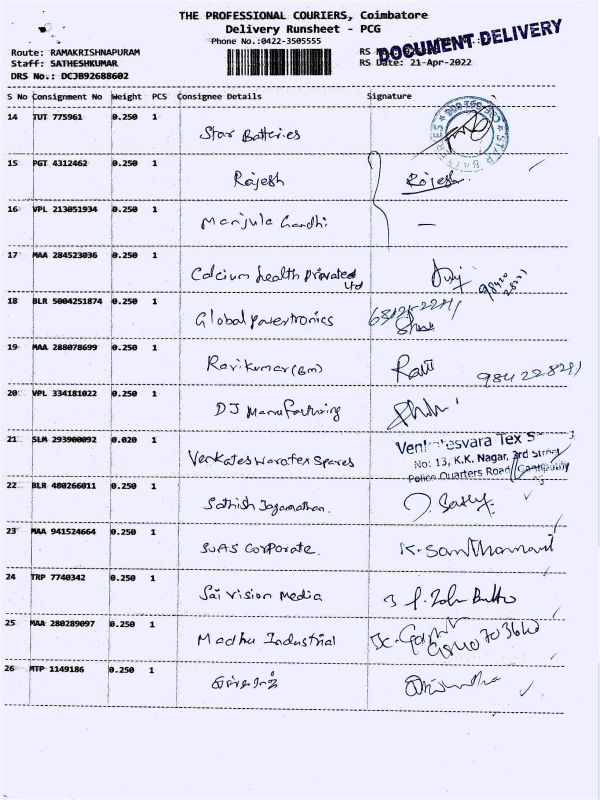 THE PROFESSIONAL COURIERS, Coimbatore
Delivery Runsheet - PCG
Phone No.:0422-3505555
DOCUMENT DELIVERY
Route: RAMAKRISHNAPURAM
Staff: SATHESHKUMAR
RS Date: 21-Apr-2022
DRS No.: DCJB92688602
S No Consignment No Weight PCS Consignee Details Signature
14 TUT 775961 0.250 1 Star Batteries
15 PGT 4312462 0.250 1 Rajesh Rajesh
16 VPL 213051934 0.250 1 Manjula Gandhi
17 MAA 284523036 0.250 1 Calcium health Private Ltd
18 BLR 5004251874 0.250 1 Global powertronics
19 MAA 288078699 0.250 1 Ravikumar (Gm) Ravi
20 VPL 334181022 0.250 1 DJ Manufacturing
21 SLM 293900092 0.020 1 Venkateswaratex Spares
Venkatesvara Tex
No: 13, K.K. Nagar, 3rd Street
Police Quarters Road
22 BLR 480266011 0.250 1 Sathish Jaganathan.
23 MAA 941524664 0.250 1 SUAS Corporate.
24 TRP 7740342 0.250 1 Sai Vision Media
25 MAA 280289097 0.250 1 Madhu Industrial
26 MTP 1149186 0.250 1